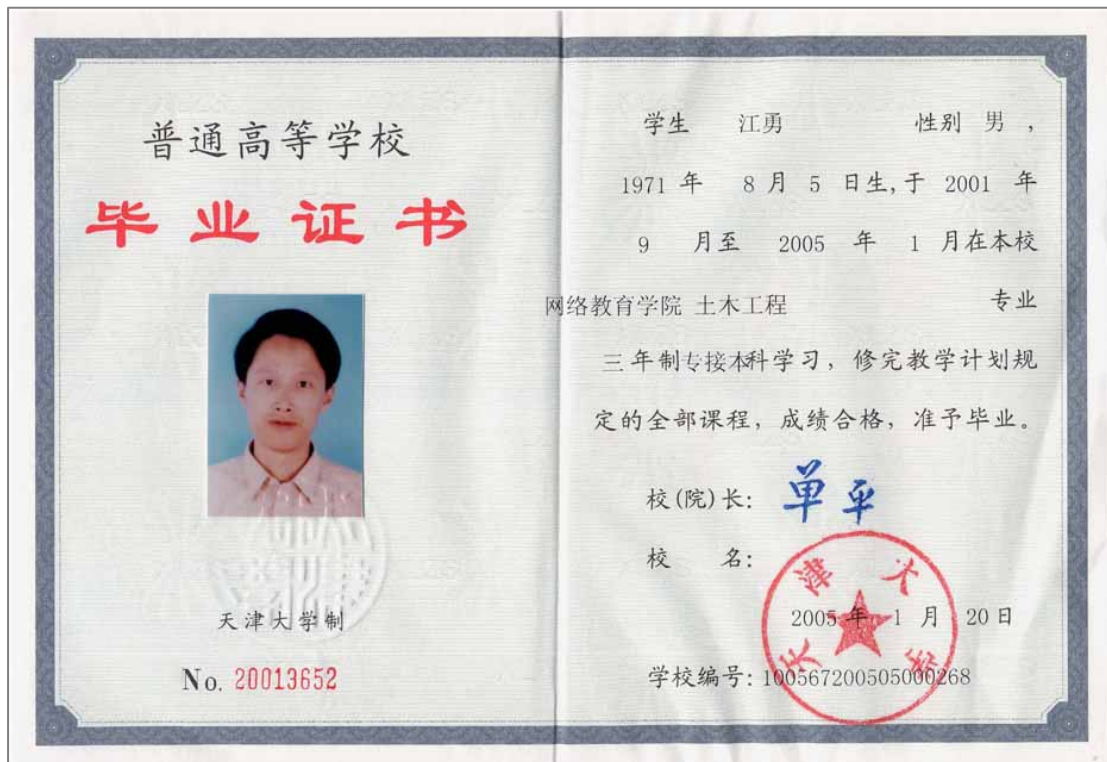 普通高等学校
毕业证书
天津大学制
No. 20013652
学生 江勇 性别 男 ,
1971 年 8 月 5 日生,于 2001 年
9 月至 2005 年 1 月在本校
网络教育学院 土木工程 专业
三年制专接本科学习，修完教学计划规
定的全部课程，成绩合格，准予毕业。
校(院)长: 单平
校 名:
天津大学
2005 年 1 月 20 日
学校编号: 100567200505000268